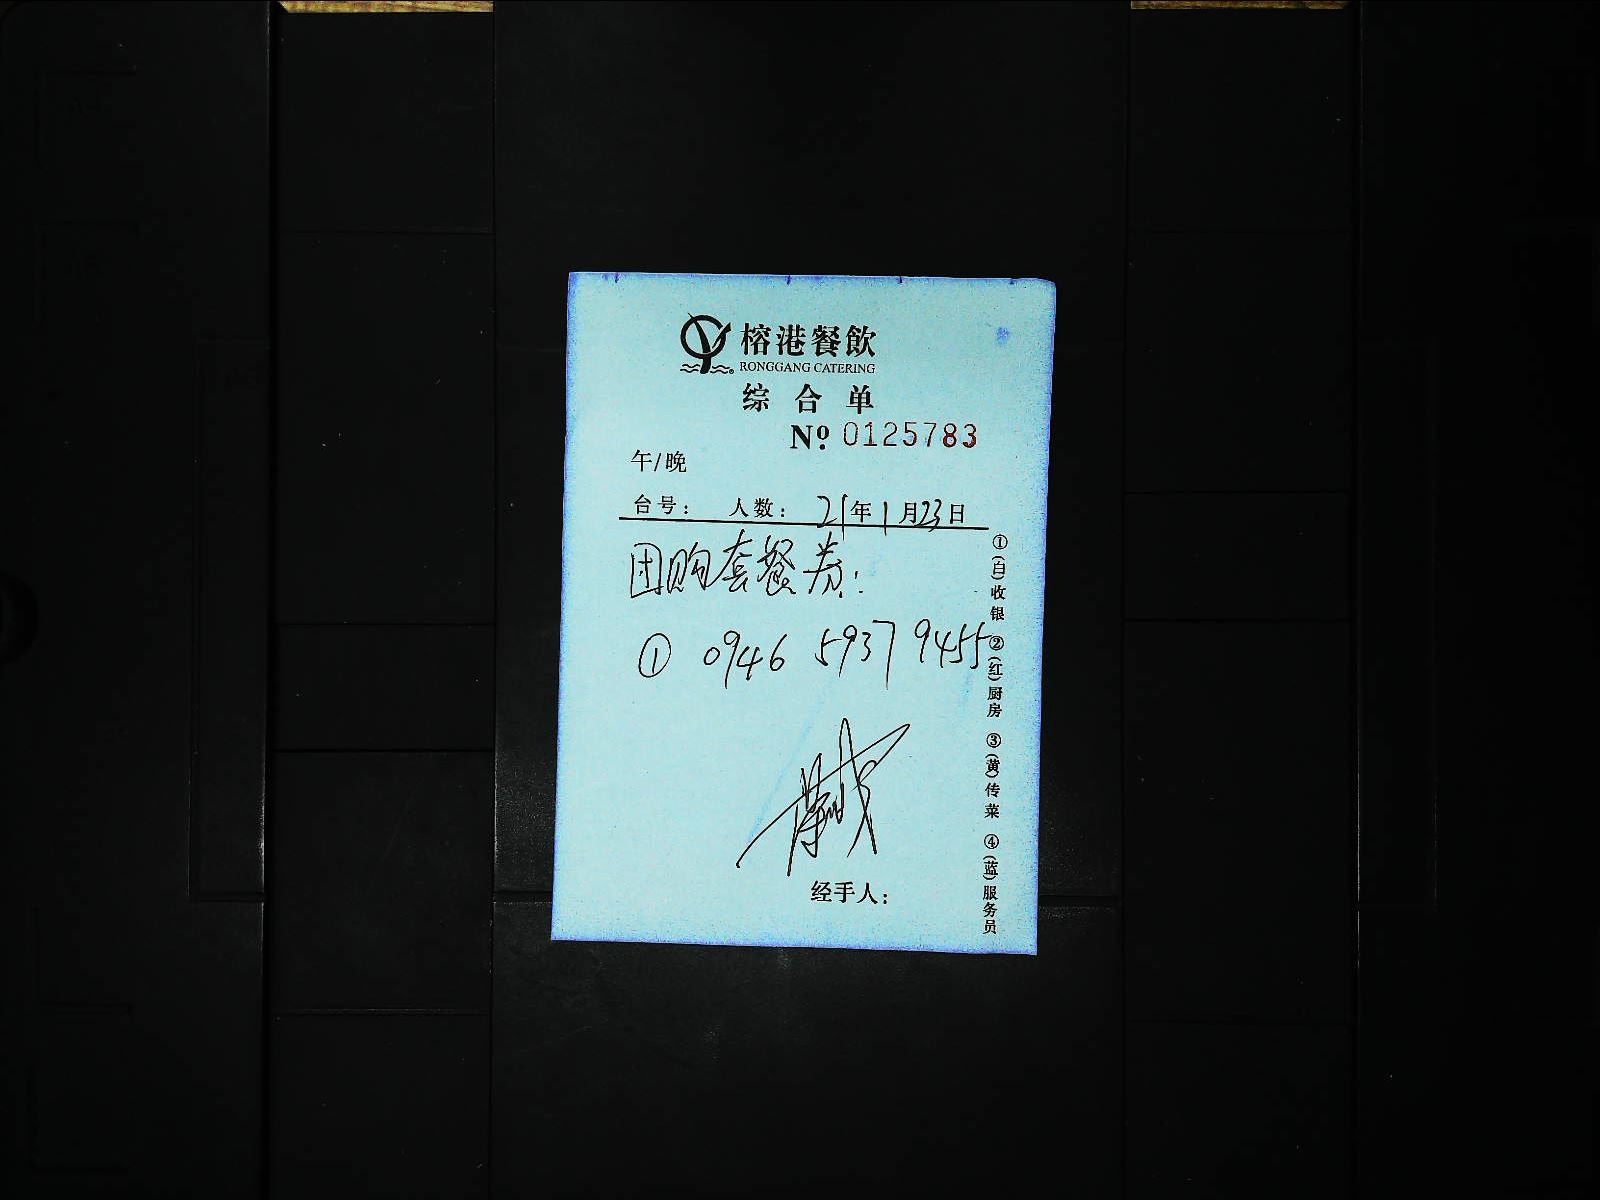 榕港餐飲
RONGGANG CATERING
综合单
Nº 0125783
午/晚
台号： 人数： 21年1月23日
团购套餐券：
① 0946 5937 9455
经手人：
①(白)收银 ②(红)厨房 ③(黄)传菜 ④(蓝)服务员